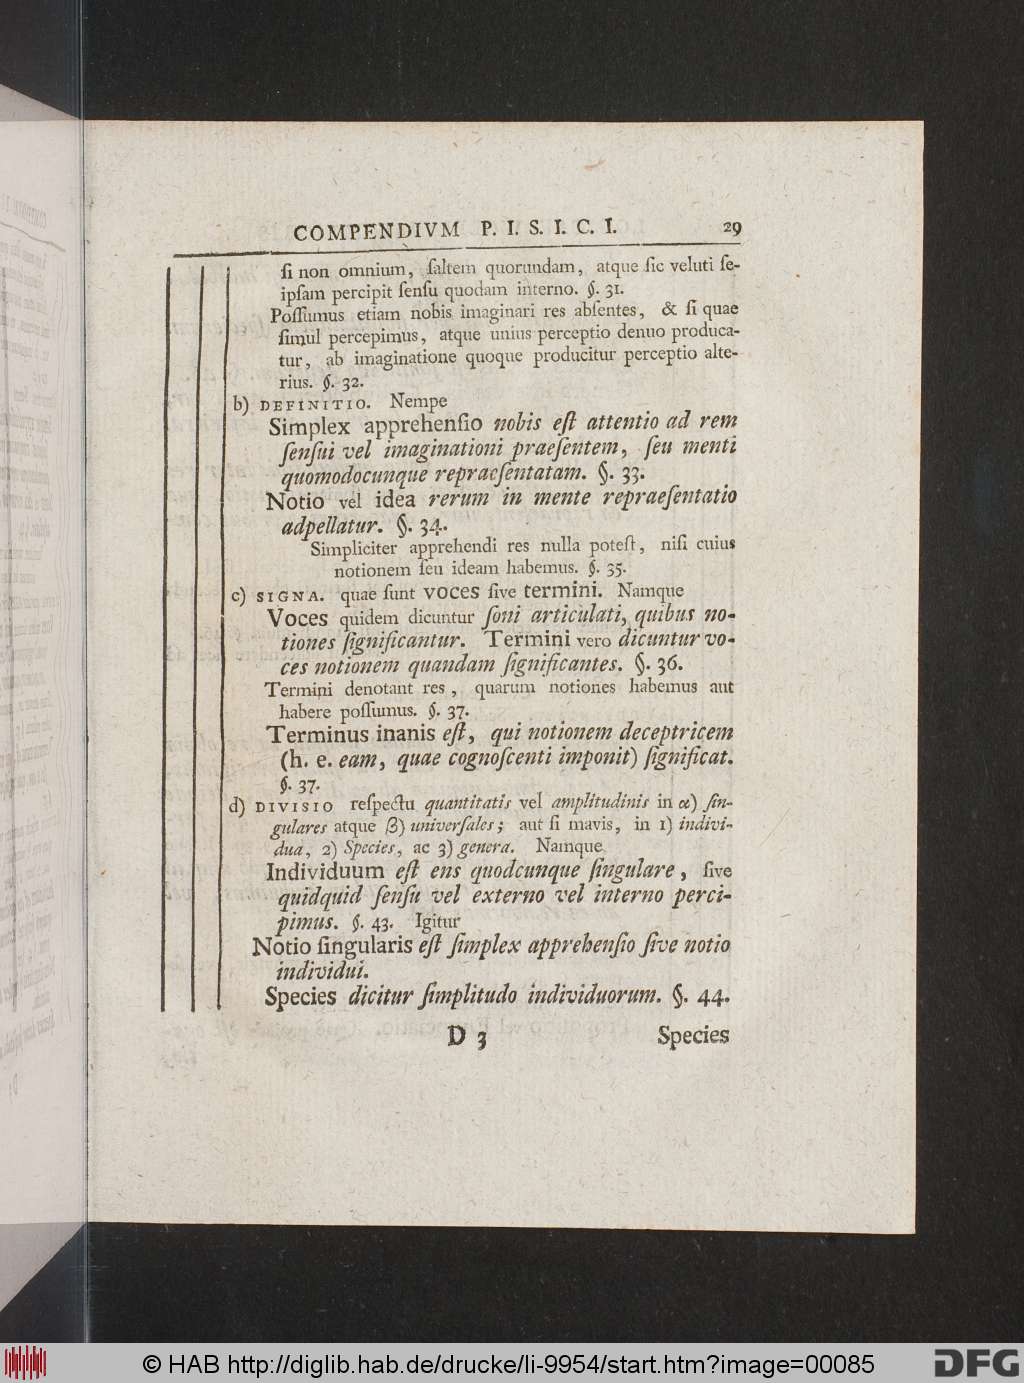 COMPENDIVM P. I. S. I. C. I. 29
ſi non omnium, ſaltem quorundam, atque ſic veluti ſe-
ipſam percipit ſenſu quodam interno. §. 31.
Poſſumus etiam nobis imaginari res abſentes, & ſi quae
ſimul percepimus, atque unius perceptio denuo produca-
tur, ab imaginatione quoque producitur perceptio alte-
rius. §. 32.
b) DEFINITIO. Nempe
Simplex apprehenſio nobis eſt attentio ad rem
ſenſui vel imaginationi praeſentem, ſeu menti
quomodocunque repraeſentatam. §. 33.
Notio vel idea rerum in mente repraeſentatio
adpellatur. §. 34.
Simpliciter apprehendi res nulla poteſt, niſi cuius
notionem ſeu ideam habemus. §. 35.
c) SIGNA. quae ſunt voces ſive termini. Namque
Voces quidem dicuntur ſoni articulati, quibus no-
tiones ſignificantur. Termini vero dicuntur vo-
ces notionem quandam ſignificantes. §. 36.
Termini denotant res, quarum notiones habemus aut
habere poſſumus. §. 37.
Terminus inanis eſt, qui notionem deceptricem
(h. e. eam, quae cognoſcenti imponit) ſignificat.
§. 37.
d) DIVISIO reſpectu quantitatis vel amplitudinis in α) ſin-
gulares atque β) univerſales; aut ſi mavis, in 1) indivi-
dua, 2) Species, ac 3) genera. Namque
Individuum eſt ens quodcunque ſingulare, ſive
quidquid ſenſu vel externo vel interno perci-
pimus. §. 43. Igitur
Notio ſingularis eſt ſimplex apprehenſio ſive notio
individui.
Species dicitur ſimplitudo individuorum. §. 44.
D 3 Species
© HAB http://diglib.hab.de/drucke/li-9954/start.htm?image=00085
DFG